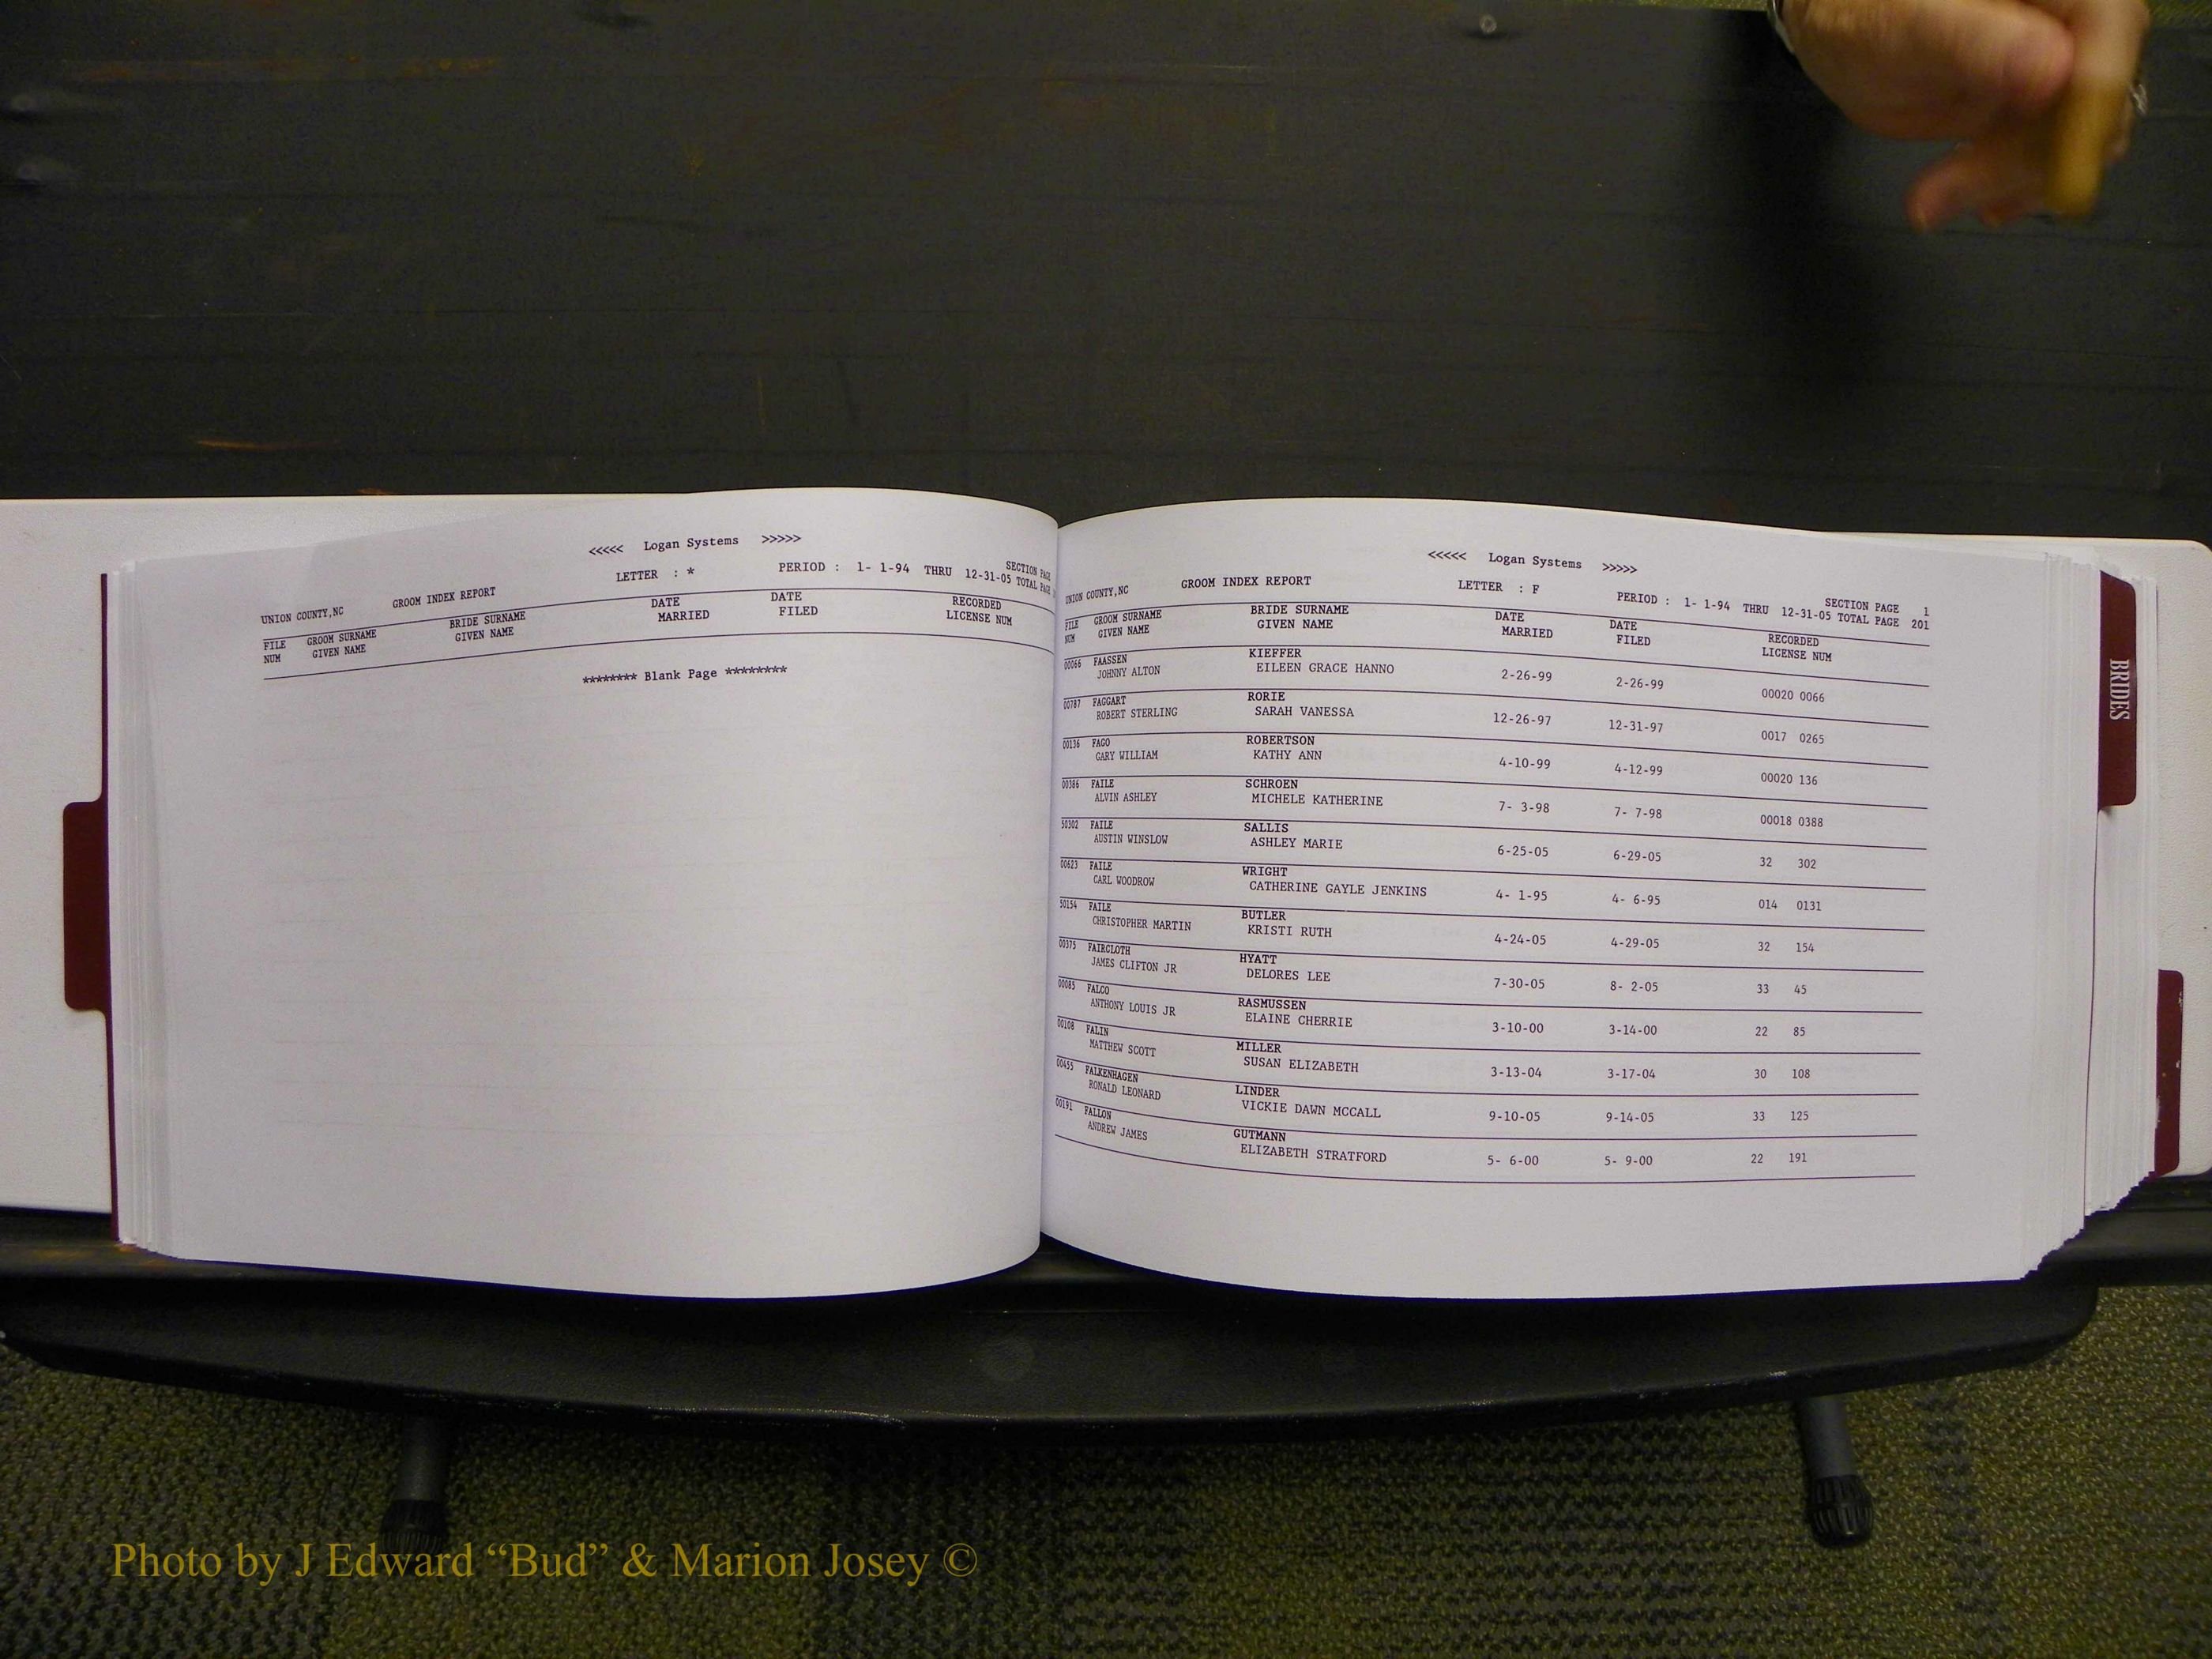 <<<<< Logan Systems >>>>>
UNION COUNTY,NC GROOM INDEX REPORT LETTER : * PERIOD : 1- 1-94 THRU 12-31-05 SECTION PAGE
TOTAL PAGE
FILE GROOM SURNAME BRIDE SURNAME DATE DATE RECORDED
NUM GIVEN NAME GIVEN NAME MARRIED FILED LICENSE NUM
******** Blank Page ********
<<<<< Logan Systems >>>>>
UNION COUNTY,NC GROOM INDEX REPORT LETTER : F PERIOD : 1- 1-94 THRU 12-31-05 SECTION PAGE 1
TOTAL PAGE 201
FILE GROOM SURNAME BRIDE SURNAME DATE DATE RECORDED
NUM GIVEN NAME GIVEN NAME MARRIED FILED LICENSE NUM
00066 FAASSEN KIEFFER
JOHNNY ALTON EILEEN GRACE HANNO 2-26-99 2-26-99 00020 0066
00787 FAGGART RORIE
ROBERT STERLING SARAH VANESSA 12-26-97 12-31-97 0017 0265
00136 FAGO ROBERTSON
GARY WILLIAM KATHY ANN 4-10-99 4-12-99 00020 136
00386 FAILE SCHROEN
ALVIN ASHLEY MICHELE KATHERINE 7- 3-98 7- 7-98 00018 0388
50302 FAILE SALLIS
AUSTIN WINSLOW ASHLEY MARIE 6-25-05 6-29-05 32 302
00623 FAILE WRIGHT
CARL WOODROW CATHERINE GAYLE JENKINS 4- 1-95 4- 6-95 014 0131
50154 FAILE BUTLER
CHRISTOPHER MARTIN KRISTI RUTH 4-24-05 4-29-05 32 154
00375 FAIRCLOTH HYATT
JAMES CLIFTON JR DELORES LEE 7-30-05 8- 2-05 33 45
00085 FALCO RASMUSSEN
ANTHONY LOUIS JR ELAINE CHERRIE 3-10-00 3-14-00 22 85
00108 FALIN MILLER
MATTHEW SCOTT SUSAN ELIZABETH 3-13-04 3-17-04 30 108
00455 FALKENHAGEN LINDER
RONALD LEONARD VICKIE DAWN MCCALL 9-10-05 9-14-05 33 125
00191 FALLON GUTMANN
ANDREW JAMES ELIZABETH STRATFORD 5- 6-00 5- 9-00 22 191
BRIDES
Photo by J Edward “Bud” & Marion Josey ©